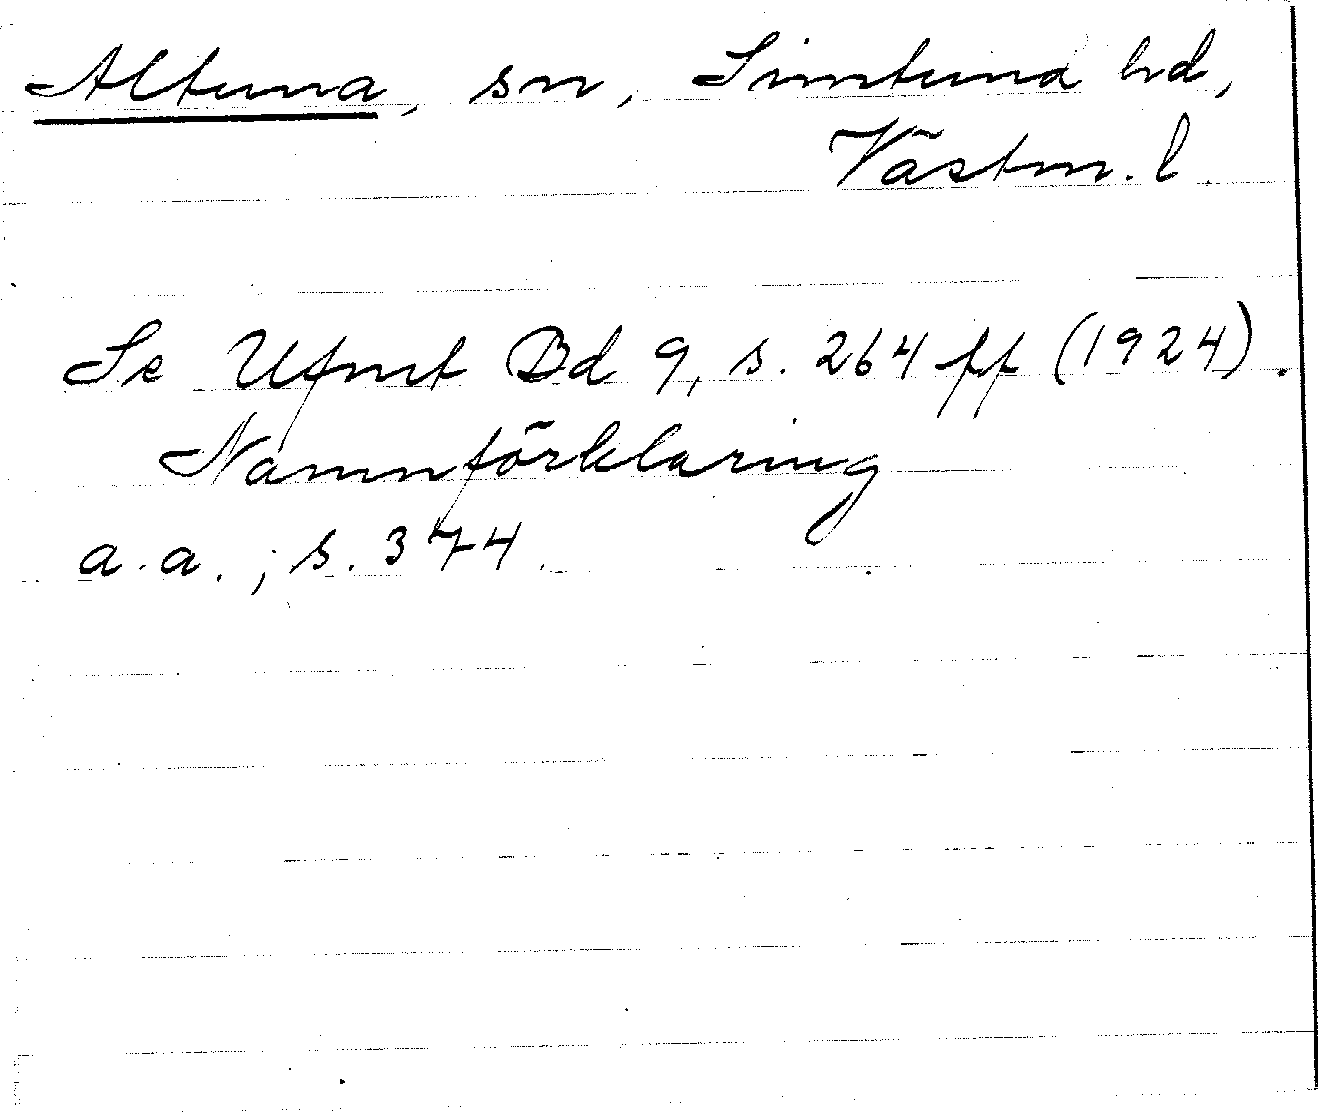 Altuna, sn, Simtuna hd,
Västm. l.
Se Ufmt Bd 9, s. 264 ff (1924).
Namnförklaring
a.a., s. 374.